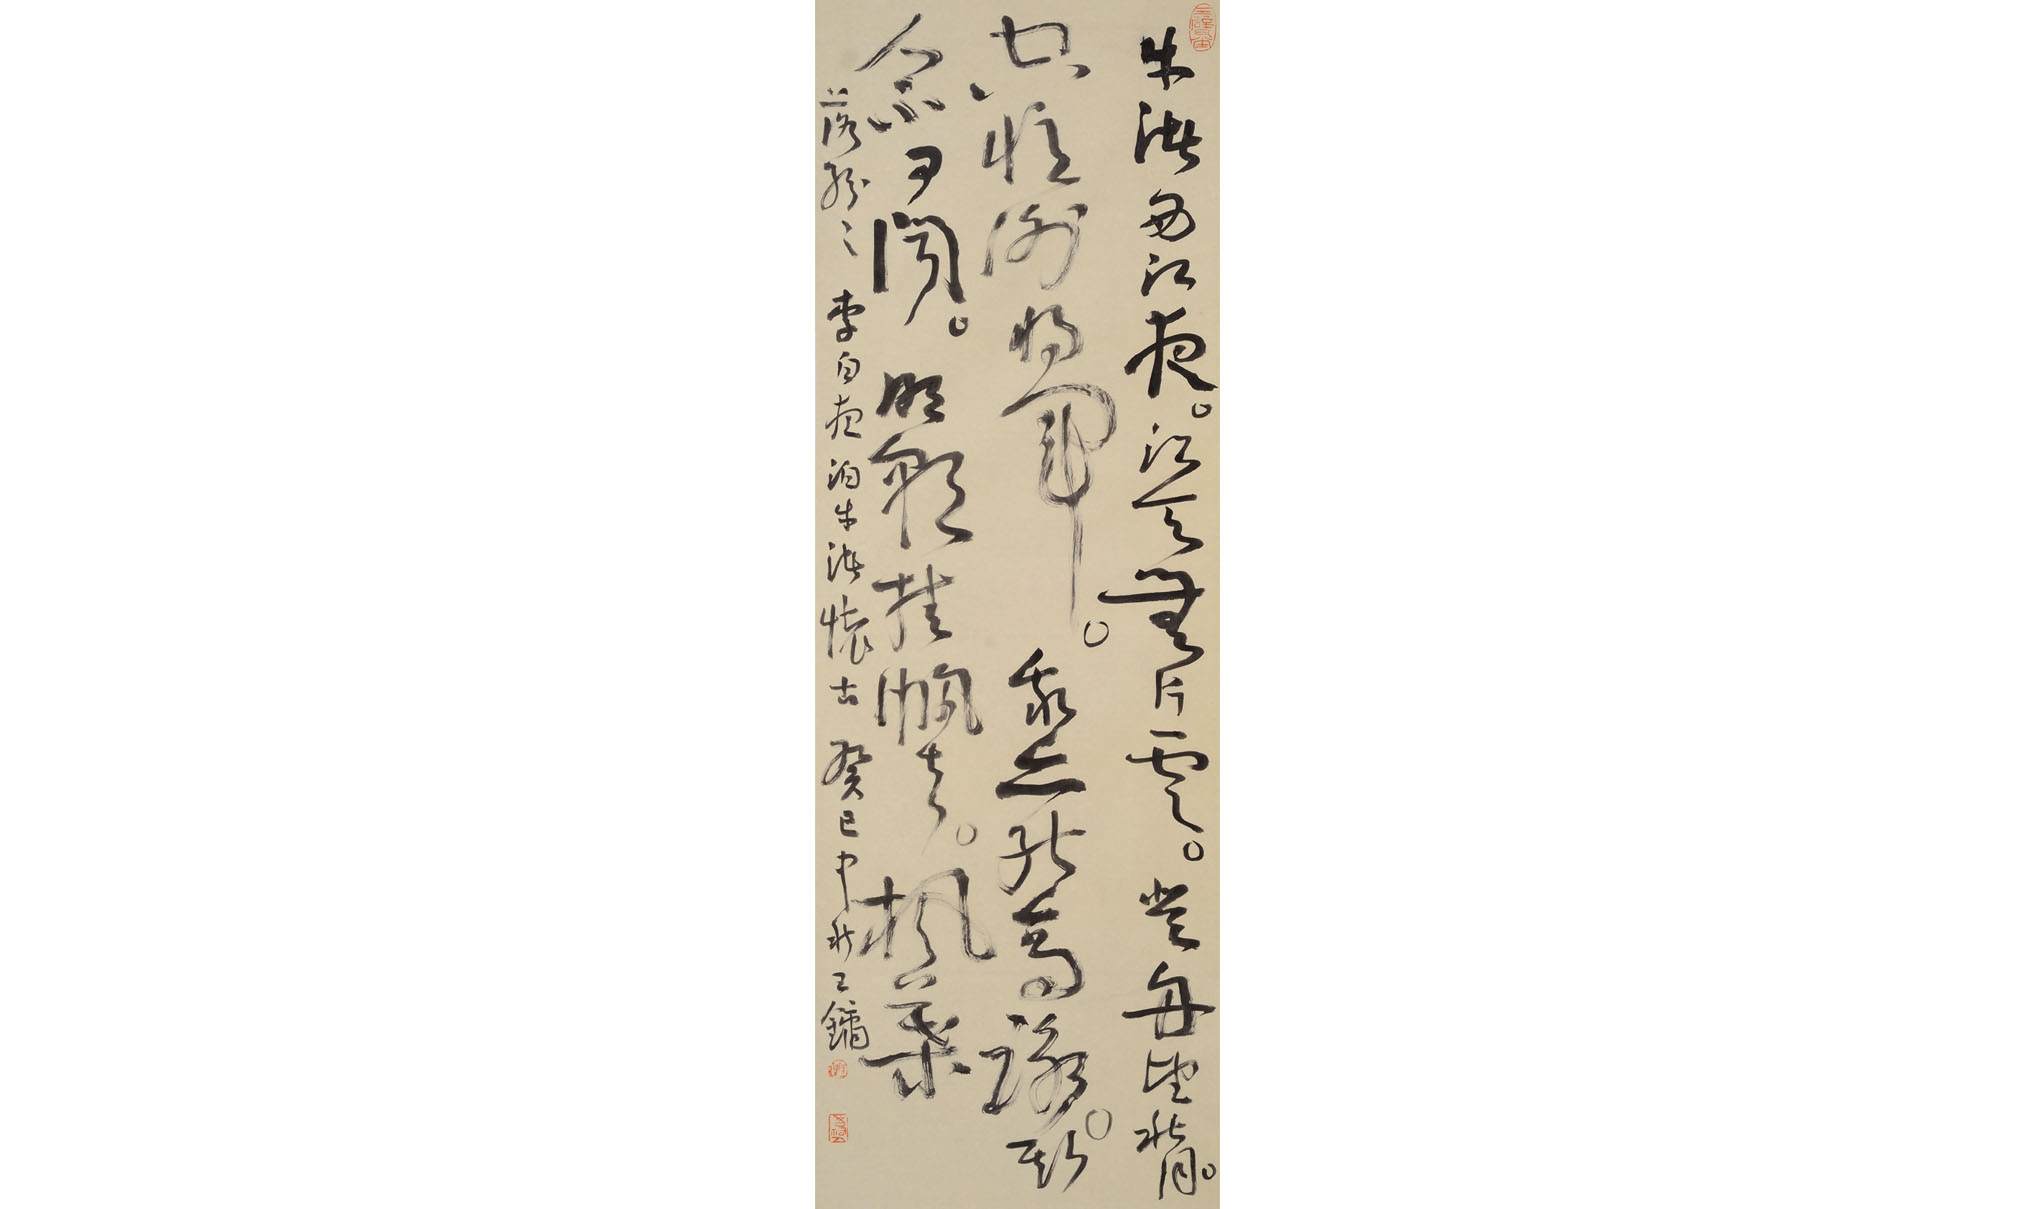 牛渚西江夜。江天無片雲。登舟望秋月。
空憶謝將軍。余亦能高詠。斯
人不可聞。明朝挂帆去。楓葉
落紛〻 李白夜泊牛渚懷古 癸巳中秋王鏞